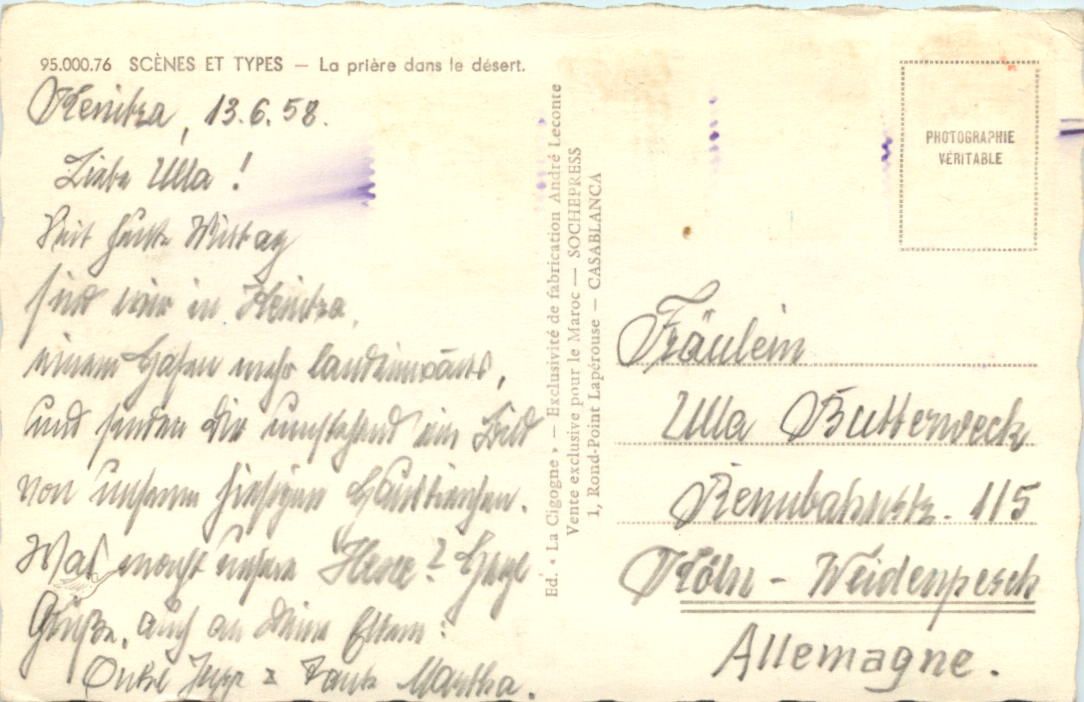 95.000.76 SCÈNES ET TYPES – La prière dans le désert.
Kenitra, 13.6.58.
Liebe Ulla!
Seit heute Mittag
sind wir in Kenitra,
einem Hafen mehr landeinwärts,
und senden Dir umstehend ein Bild
von unseren hiesigen Haustierchen.
Was macht unsere Hexe? Herzl
Grüße, auch an Deine Eltern:
Onkel Jupp & Tante Martha.
Ed. « La Cigogne » — Exclusivité de fabrication André Leconte
Vente exclusive pour le Maroc — SOCHEPRESS
1, Rond-Point Lapérouse – CASABLANCA
PHOTOGRAPHIE
VÉRITABLE
Fräulein
Ulla Butterweck
Rennbahnstr. 115
Köln - Weidenpesch
Allemagne.